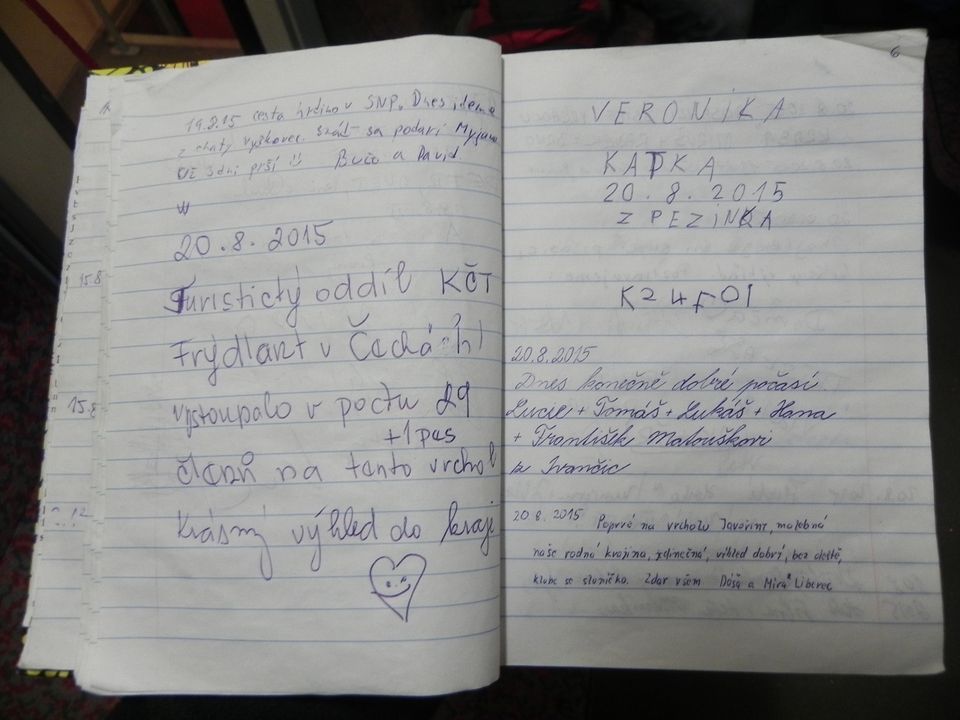 19.8.15 cesta hrdinov SNP. Dnes ideme
z chaty výškovec. Snáď sa podarí Myjava
Už 3dni prší Bučo a David
20.8.2015
Turistický oddíl KČT
Frýdlant v Čechách
vystoupalo v počtu 29
+1 pes
členů na tento vrchol
Krásný výhled do kraje
6
VERONIKA
KATKA
20.8.2015
Z PEZINKA
20.8.2015
Dnes konečně dobré počasí
Lucie + Tomáš + Lukáš + Hana
+ František Matouškovi
z Ivančic
20 8. 2015 Poprvé na vrcholu Javořiny, malebná
naše rodná krajina, jedinečná, výhled dobrý, bez deště,
klube se sluníčko. Zdar všem Dáša a Mira Liberec
15.8
15.8